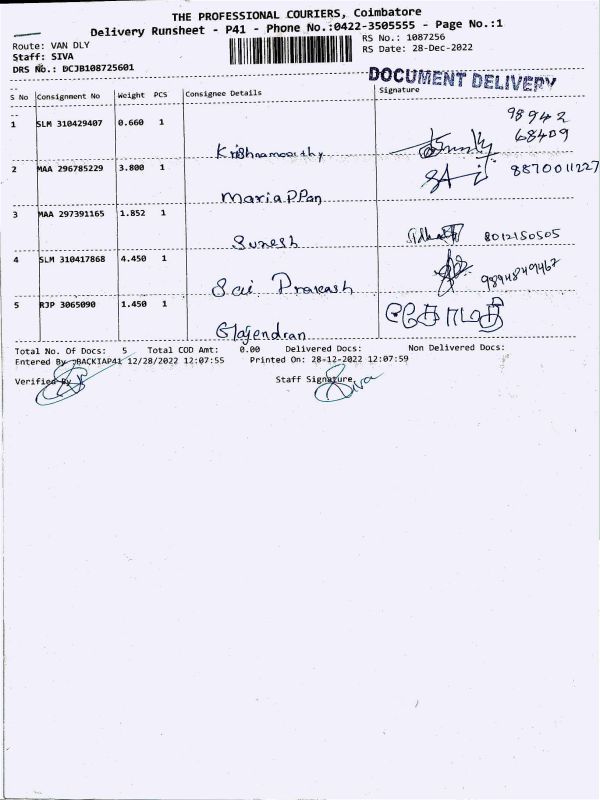 THE PROFESSIONAL COURIERS, Coimbatore
Delivery Runsheet - P41 - Phone No.:0422-3505555 - Page No.:1
Route: VAN DLY
RS No.: 1087256
Staff: SIVA
RS Date: 28-Dec-2022
DRS No.: DCJB108725601
DOCUMENT DELIVERY
S No Consignment No Weight PCS Consignee Details Signature
1 SLM 310429407 0.660 1 98942
68409
Krishnamoorthy
2 MAA 296785229 3.800 1 8870011227
MariaPPan
3 MAA 297391165 1.852 1
Suresh 8012150505
4 SLM 310417868 4.450 1
Sai Prakash
5 RJP 3065090 1.450 1
Gajendran
Total No. Of Docs: 5 Total COD Amt: 0.00 Delivered Docs: Non Delivered Docs:
Entered By :BACKIAP41 12/28/2022 12:07:55 Printed On: 28-12-2022 12:07:59
Verified By Staff Signature
Siva